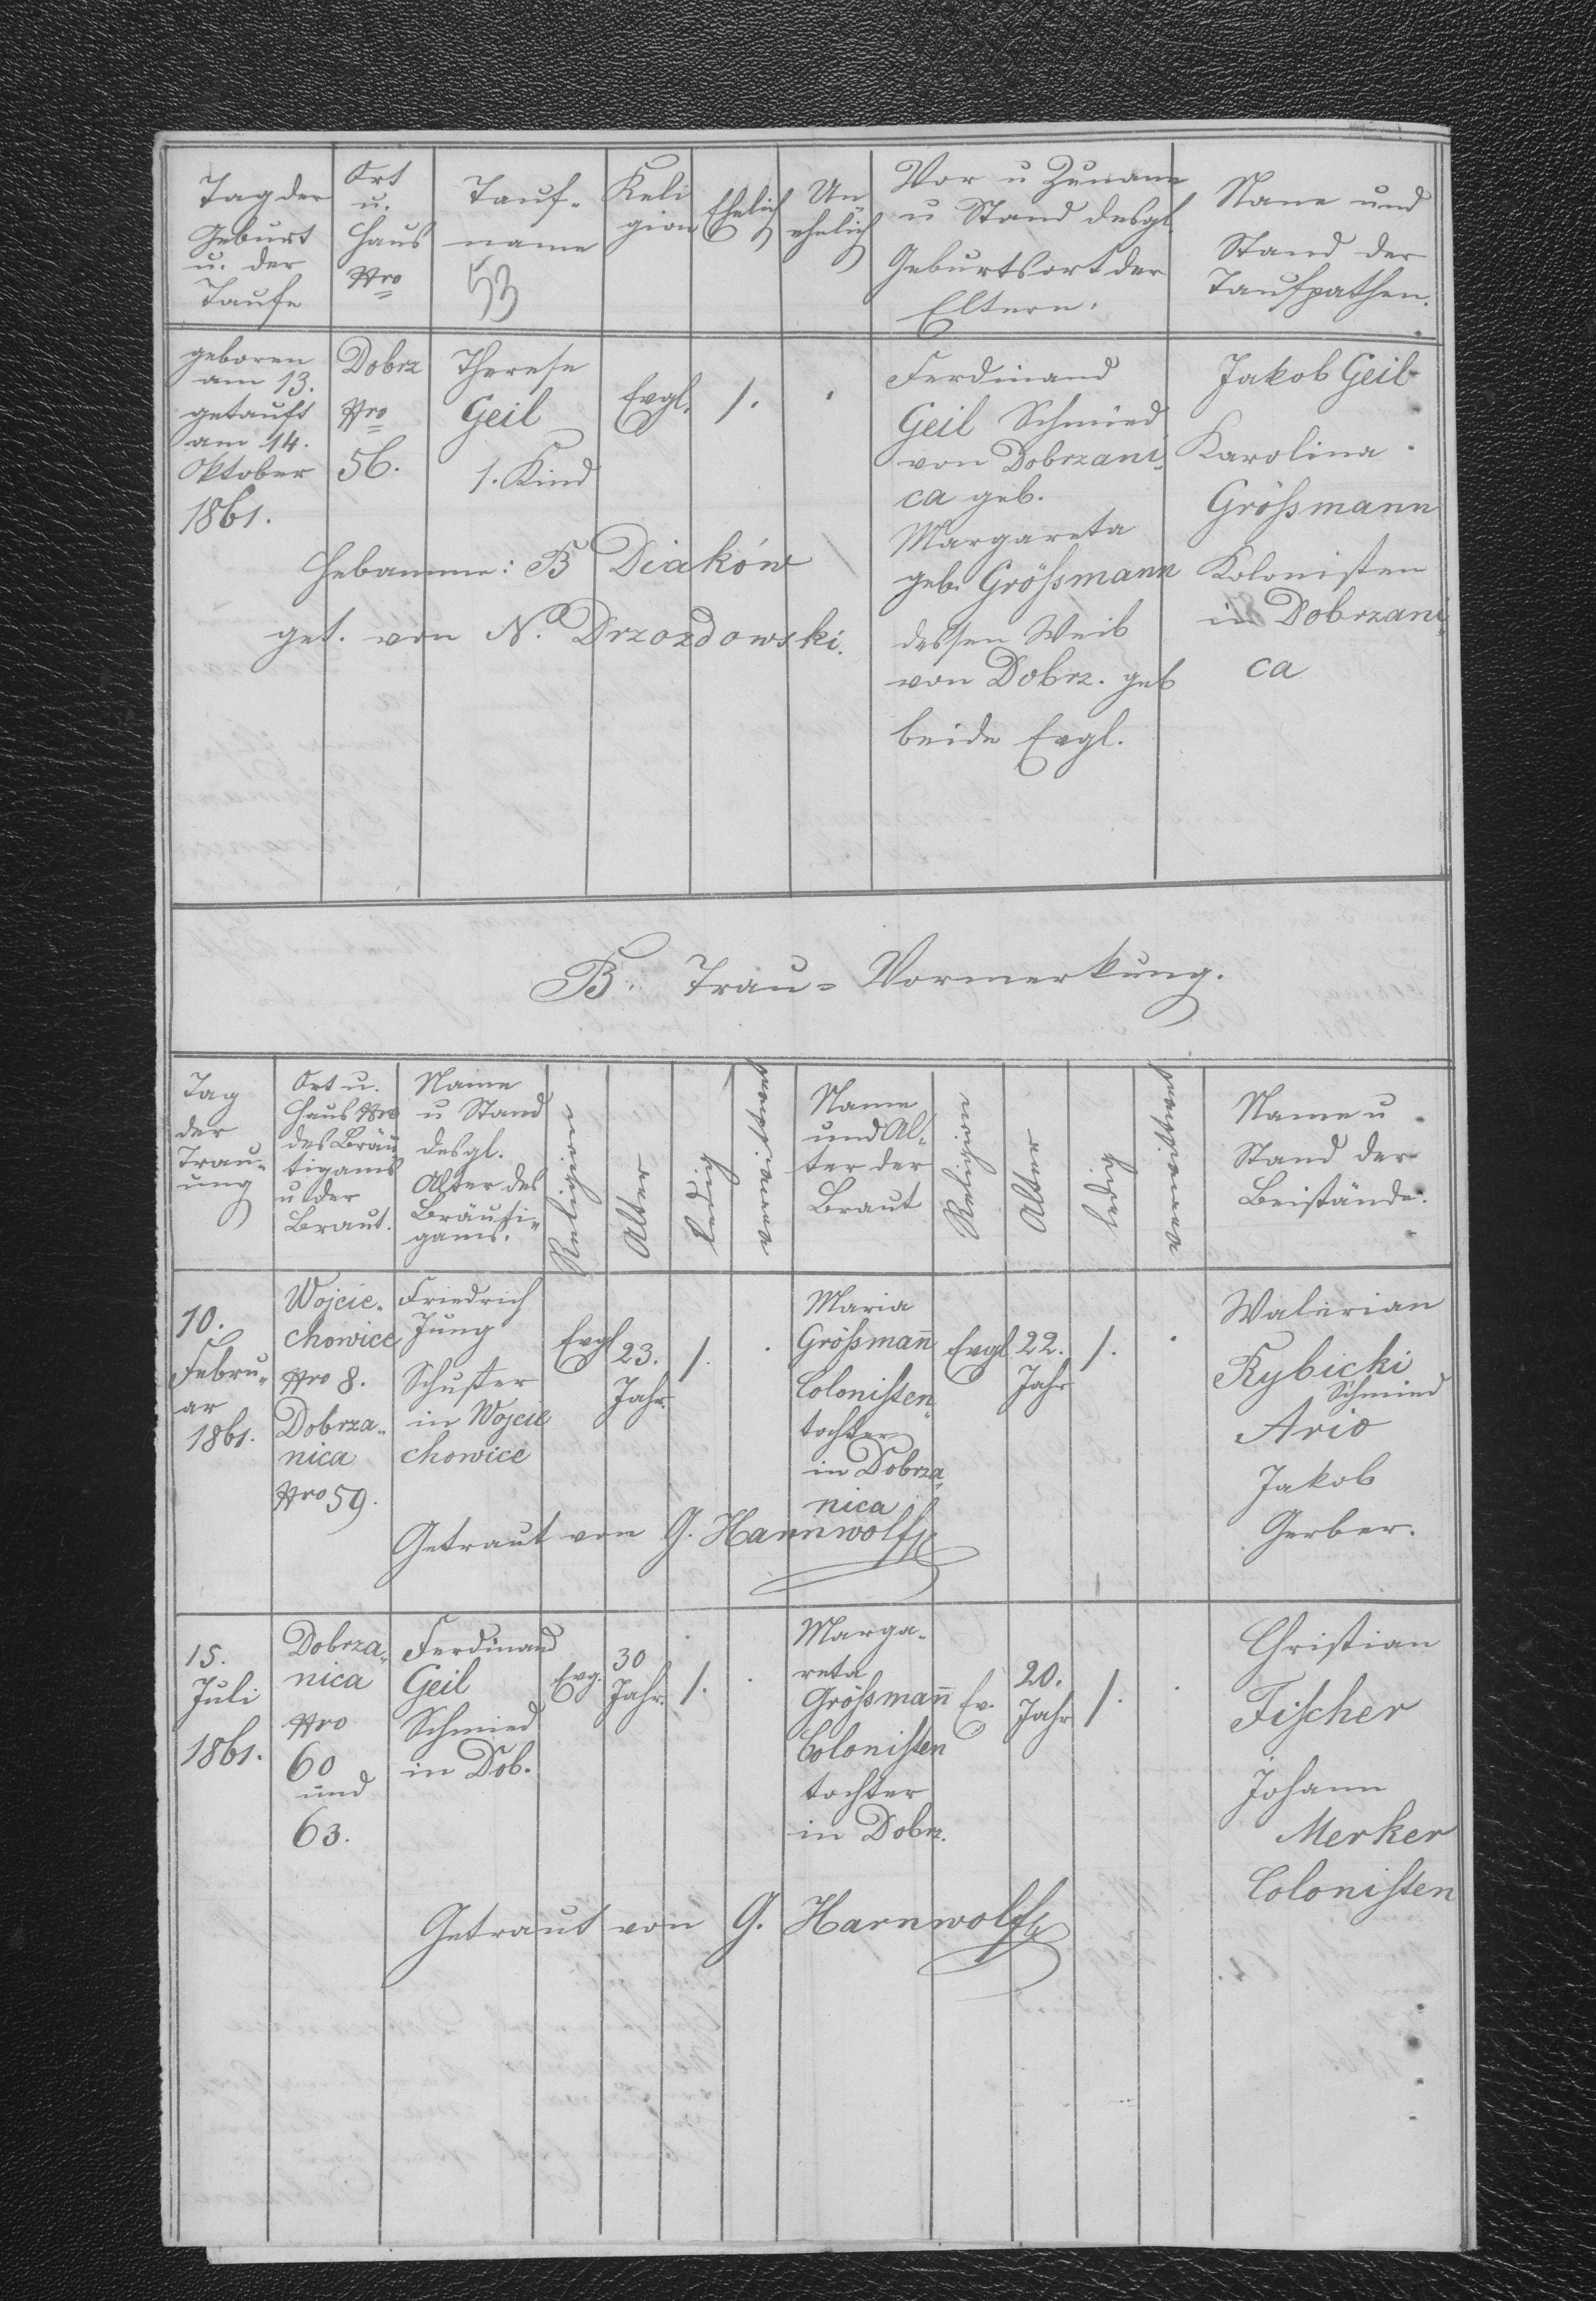 Tag der
Geburt
u. der
Taufe
Ort
u.
Haus
Nro
Tauf-
name
53
Reli
gion
Ehelich
Un
ehelich
Vor u Zuname
u Stand desgl.
Geburtsort der
Eltern.
Name und
Stand der
Taufpathen.
geboren
am 13.
getauft
am 14.
Oktober
1861.
Dobrz
Nro
56.
Therese
Geil
1. Kind
Evgl.
1.
Ferdinand
Geil Schmied
von Dobrzani
ca geb.
Margareta
geb. Größmann
dessen Weib
von Dobrz. geb
beide Evgl.
Jakob Geil
Karolina
Größmann
Kolonisten
in Dobrzani
ca
Hebamme: B Diaków
get. von N. Drzozdowski.
B. Trau-Vormerkung.
Tag
der
Trau-
ung
Ort u.
Haus Nro
des Bräu
tigams
u der
Braut.
Name
u Stand
desgl.
Alter des
Bräuti-
gams.
Religion
Alter
ledig
verwittwet
Name
und Al-
ter der
Braut
Religion
Alter
ledig
verwittwet
Name u
Stand der
Beistände.
10.
Febru-
ar
1861.
Wojcie-
chowice
Nro 8.
Dobrza-
nica
Nro 59.
Friedrich
Jung
Schuster
in Wojcie
chowice
Evgl
23.
Jahr.
1.
Maria
Größmañ
Colonisten-
tochter
in Dobrza-
nica
Evgl.
22.
Jahr
1.
Walerian
Rybicki
Schmied
Ario
Jakob
Gerber.
Getraut von G. Harnwolf
15.
Juli
1861.
Dobrza-
nica
Nro
60
und
63.
Ferdinand
Geil
Schmied
in Dob.
Evg.
30
Jahr.
1.
Marga-
reta
Größmañ
Colonisten
tochter
in Dobrz.
Ev.
20.
Jahr
1.
Christian
Fischer
Johann
Merker
Colonisten
Getraut von G. Harnwolf